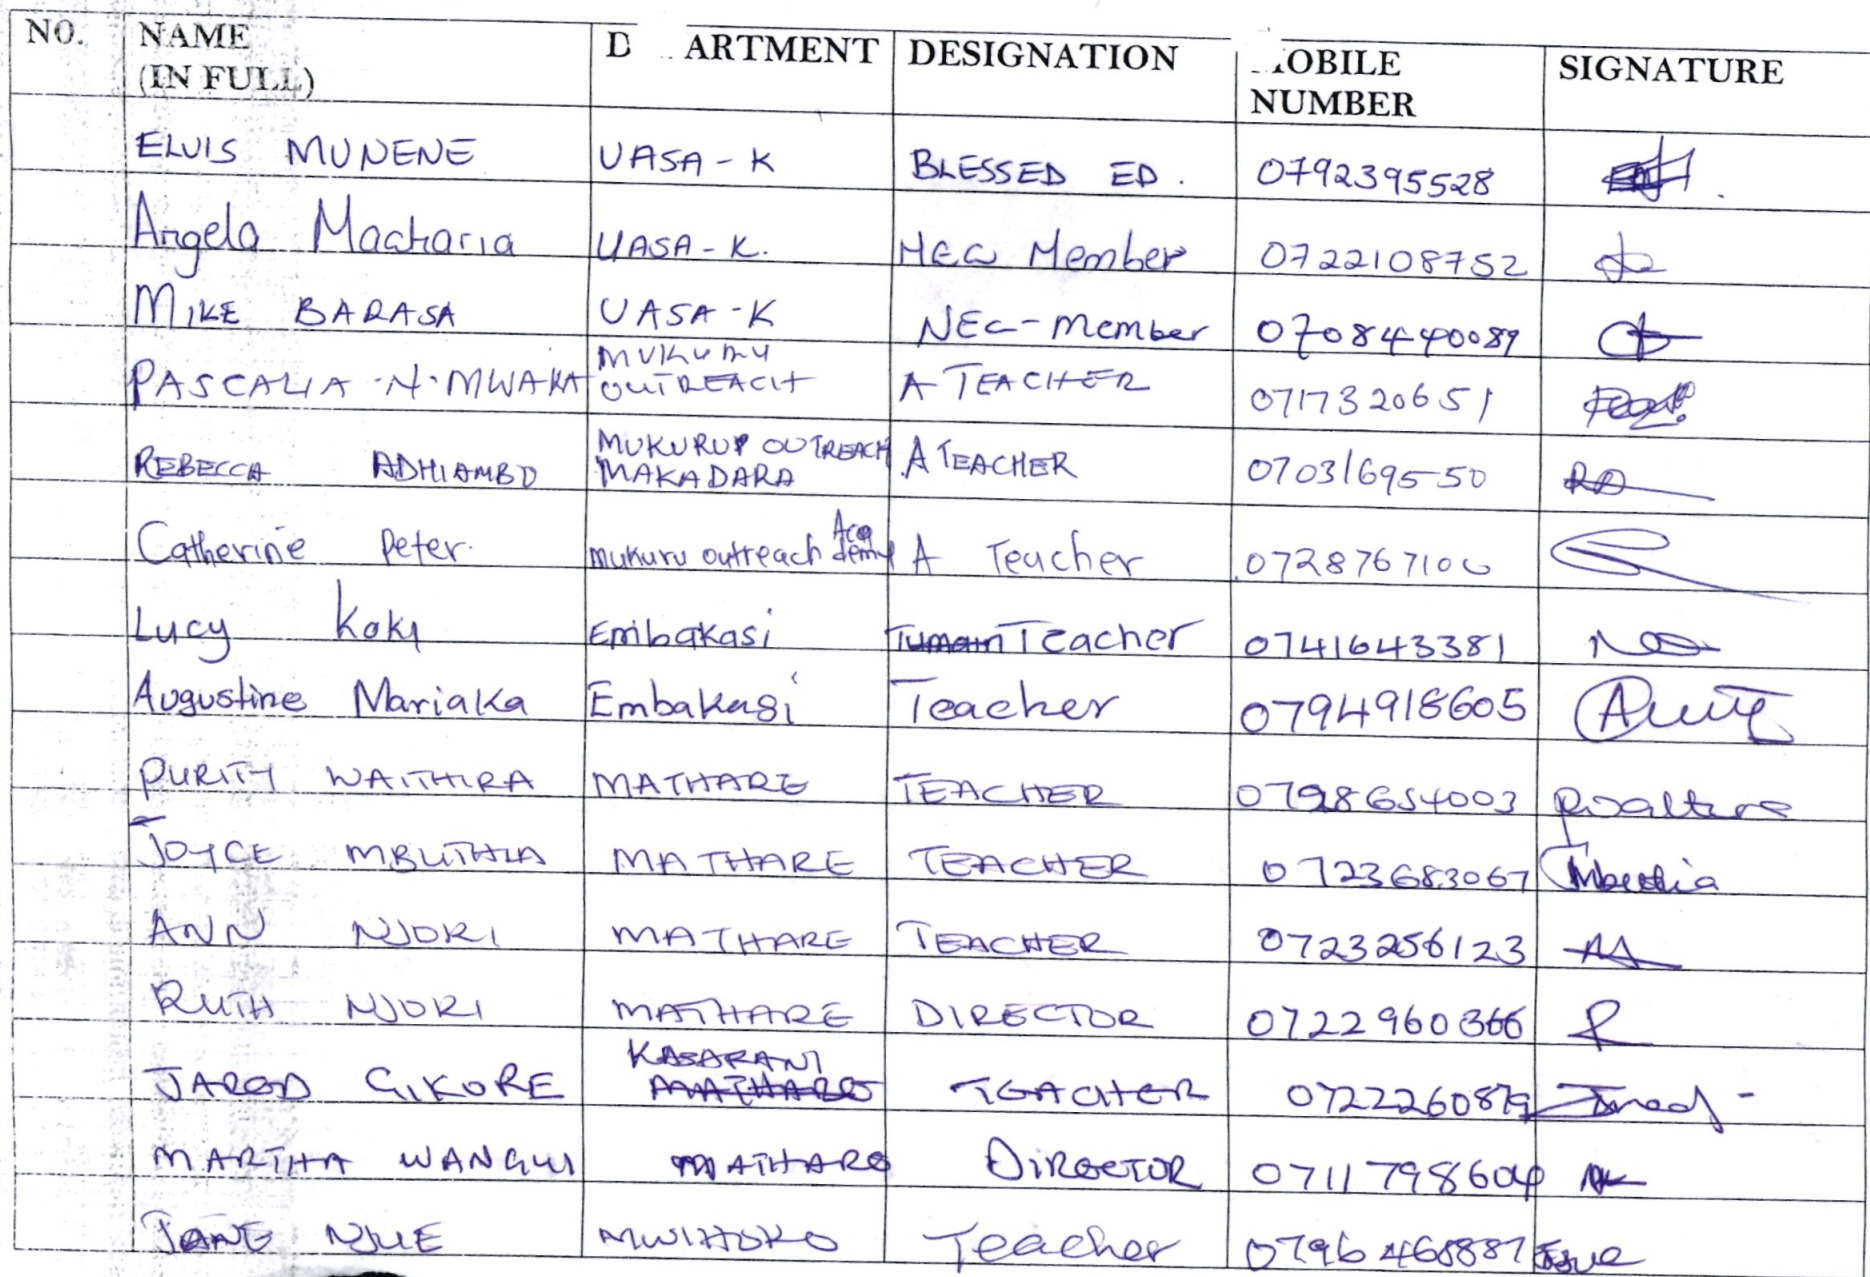 NO. NAME D ARTMENT DESIGNATION OBILE SIGNATURE
(IN FULL) NUMBER
ELVIS MUNENE UASA-K BLESSED ED. 0792395528
Angela Macharia UASA-K. NEC Member 0722108752
MIKE BARASA UASA-K NEC-Member 0708440089
PASCALIA .N. MWAKA MUKURU OUTREACH A TEACHER 0717320651
REBECCA ADHIAMBO MUKURU OUTREACH MAKADARA A TEACHER 0703169550
Catherine Peter. Mukuru outreach Academy A Teacher 0728767100
Lucy Koki Embakasi Teacher 0741643381
Augustine Mariaka Embakasi Teacher 0794918605
PURITY WAITHIRA MATHARE TEACHER 0798654003
JOYCE MBUTHIA MATHARE TEACHER 0723683067 Mbuthia
ANN NJORI MATHARE TEACHER 0723256123
RUTH NJORI MATHARE DIRECTOR 0722960366
JAROD GIKORE KASARANI MATHARE TEACHER 0722260879
MARTHA WANGUI MATHARE DIRECTOR
JANE NJUE MWIHOKO Teacher 0796468887